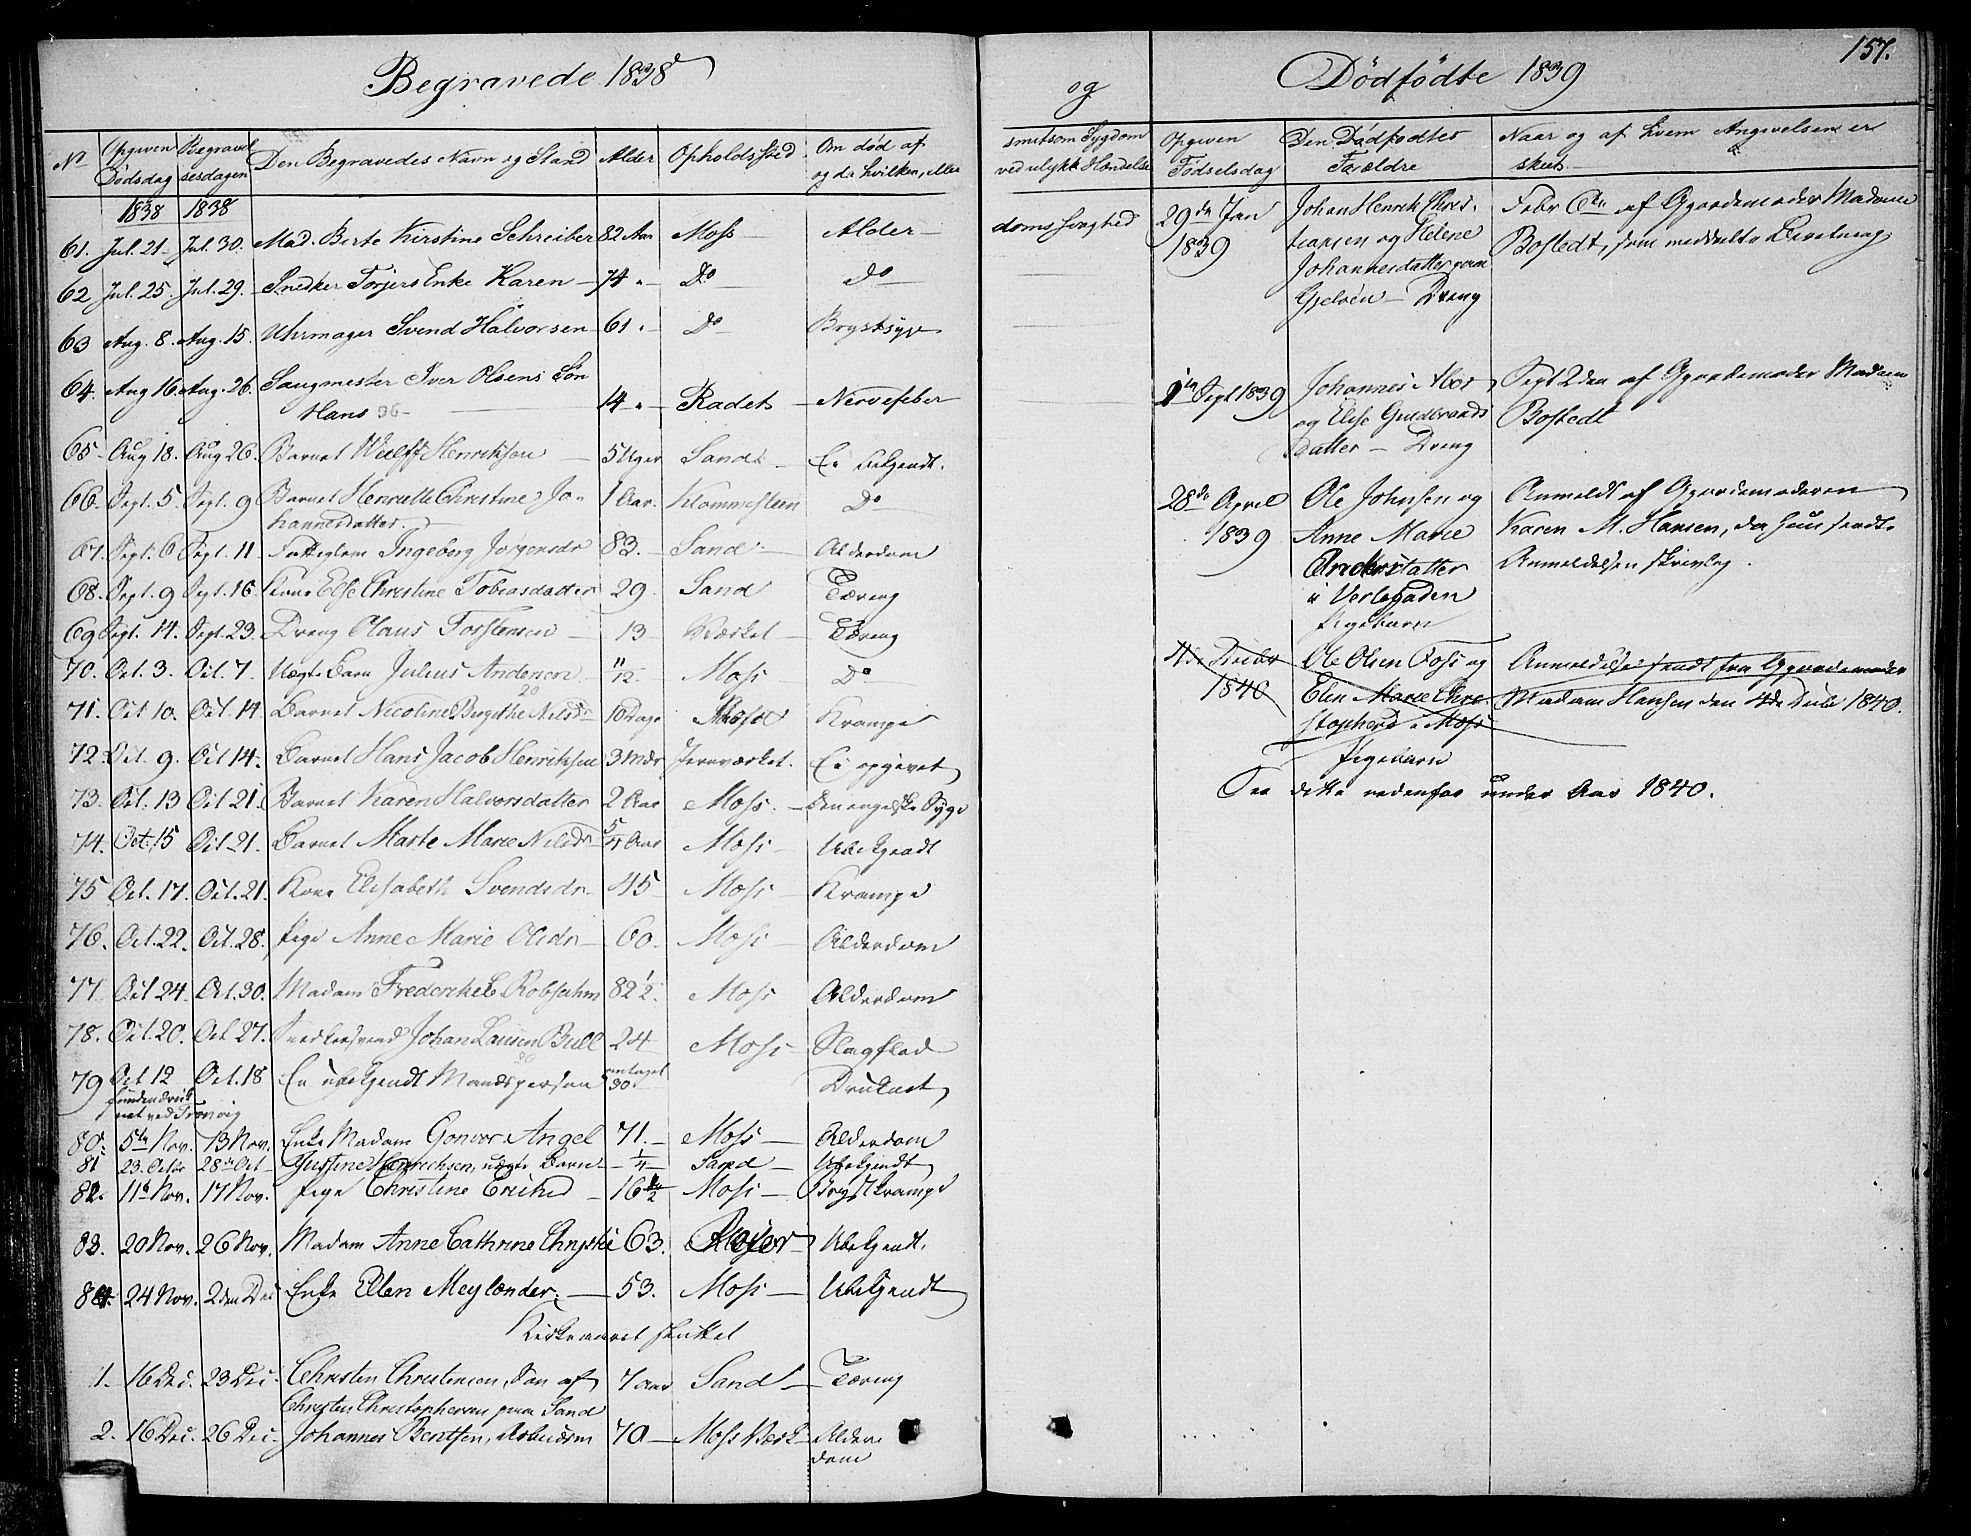 Begravede 1838
No Opgiven Dødsdag Begravelsesdagen Den Begravedes Navn og Stand Alder Opholdssted Om død af og da hvilken, eller
1838 1838
61. Jul. 21. Jul. 30. Mad. Berte Kirstine Schreiber 82 Aar Moss Alder
62 Jul. 25. Jul. 29. Snedker Torjers Enke Karen 74 " Do Do
63 Aug. 8. Aug. 15. Uhrmager Svend Halvorsen 61 " Do Brystsyge
64. Aug 16. Aug. 26. Saugmester Iver Olsens Søn
Hans 14 " Radets Nervefeber
65. Aug 18. Aug 26. Barnet Wulff Henriksen 5 Uger Sand Ubekjendt.
66. Sept. 5. Sept. 9 Barnet Henriette Christine Jo-
hannesdatter. 1 Aar. Klommesteen Do
67. Sept. 6 Sept. 11 Fattiglem Ingeborg Jørgensdr 83. Sand Alderdom
68. Sept. 9 Sept. 16. Kone Else Christine Tobiasdatter 29. Sand Tæring
69 Sept. 14. Sept. 23. Dreng Claus Torstensen 13 Værket Tæring
70. Oct. 3. Oct. 7. Uægte Barn Julius Andersen 11/12. Moss Do
71. Oct 10. Oct. 14 Barnet Nicoline Birgithe Nilsdr 10 Dage Krampe
72. Oct. 9. Oct 14. Barnet Hans Jacob Henriksen 3 Mdr Jernværket. Ei opgivet
73. Oct. 13 Oct 21. Barnet Karen Halvorsdatter 2 Aar Moss. Den engelske Syge
74. Oct. 15 Oct 21. Barnet Marte Marie Nilsdr 5/4 Aar Moss Ubekjendt
75 Oct. 17. Oct. 21. Kone Elisabeth Svendsdr 45 Moss Krampe
76. Oct. 22. Oct. 28. Pige Anne Marie Olsdr 60. Moss Alderdom
77. Oct 24. Oct. 30. Madam Frederikke Robsahm 82 1/2. Moss Alderdom
78. Oct. 20. Oct 27. Snedkersvend Johan Laursen Bull 24 Moss Slagflod
79 Oct 12 Oct. 18 En ubekjendt Mandsperson antaget 30 Druknet
funden druk-
net ved Tronvig
80. 5te Nov. 13 Nov. Enke Madam Gonvor Angel 71. Moss Alderdom
81 23. Octbr 28de Oct Justine Henrichsen, uægte Barn 1/4 Sand Ubekjendt
82. 11te Nov. 17 Nov. Pige Christine Ericksd 16 1/2 Moss Brystkrampe
83. 20 Nov. 26 Nov. Madam Anne Cathrine Chrystie 63. Ubekjendt.
84. 24 Nov. 2den Dec Enke Ellen Meylænder. 53. Moss Ubekjendt
Kirkeaaret sluttet
1. 16 Dec. 23 Dec. Christen Christensen, Søn af 7 aar Sand Tæring
Christen Christophersen paa Sand
2. 16 Dec. 26 Dec. Johannes Bentsen, Arbeidsm 70 Moss Værk Alder-
dom
og
smitsom Sygdom
ved ulykk. Hændelse
doms svaghed
Dødfødte 1839
157.
Opgiven Fødselsdag Den Dødfødtes Forældre Naar og af hvem Angivelsen er skeet.
29de Jan 1839
Johan Henrik Chris-
tiansen og Helene
Johannesdatter
Gjeløen — Dreng
Febr 6te af Gjordemoder Madame
Bostedt, som meddeelte Beviis
1ste Sept 1839
Johannes
og Else Guldbrands
datter — Dreng
Sept 2den af Gjordemoder Madam
Bostedt
28de April 1839
Ole Johnsen og
Anne Marie
Andersdatter
i Verlegaden
Pigebarn
Anmeldt af Gjordemoderen
Karen M. Hansen, der hun sendte
Anmeldelsen skrivlig.
1840
Ole Olsen Foss og
Elen Marie Chri-
stophersd i Moss
Pigebarn
Anmeldelse sendt fra Gjordemoder
Madam Hansen den 4de 1840.
See dette nedenfor under Aar 1840.